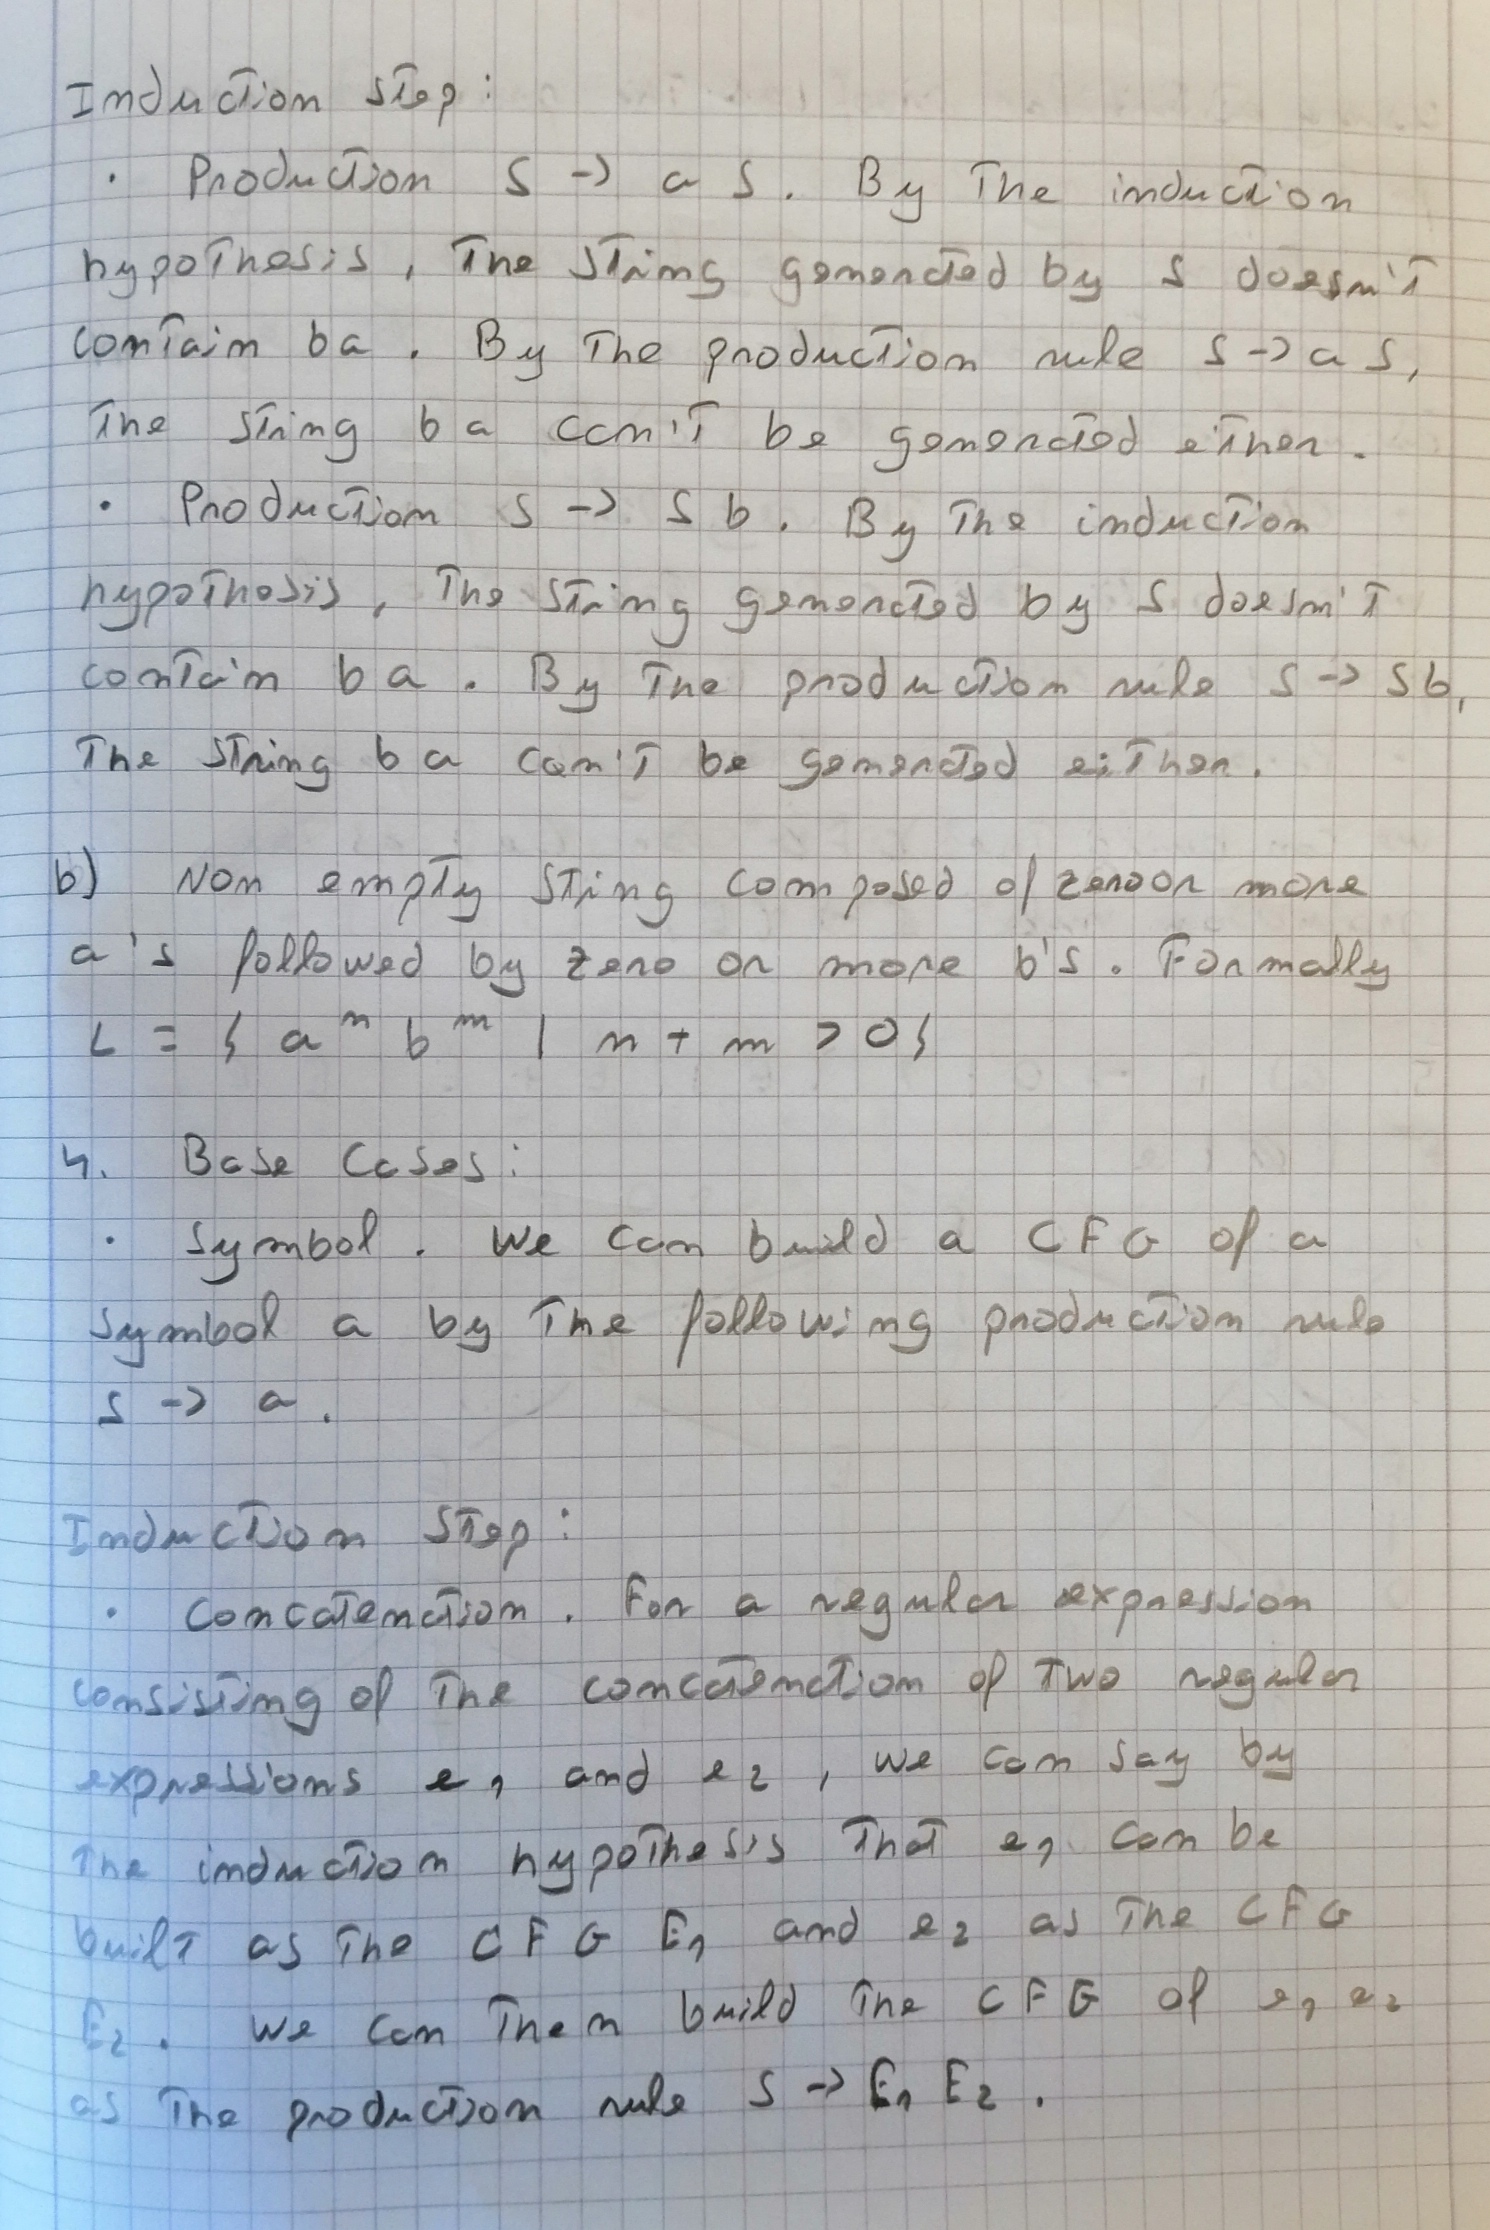 Induction Step:
· Production S -> a S. By the induction
hypothesis, the string generated by S doesn't
contain ba. By the production rule S -> a S,
the string ba can't be generated either.
· Production S -> S b. By the induction
hypothesis, the string generated by S doesn't
contain ba. By the production rule S -> S b,
the string ba can't be generated either.
b) Non empty string composed of zero or more
a's followed by zero or more b's. Formally
L = { a^n b^m | n + m > 0 }
4. Base Cases:
· Symbol. We can build a CFG of a
symbol a by the following production rule
S -> a.
Induction Step:
· Concatenation. For a regular expression
consisting of the concatenation of two regular
expressions e1 and e2, we can say by
the induction hypothesis that e1 can be
built as the CFG E1 and e2 as the CFG
E2. We can then build the CFG of e1 e2
as the production rule S -> E1 E2.